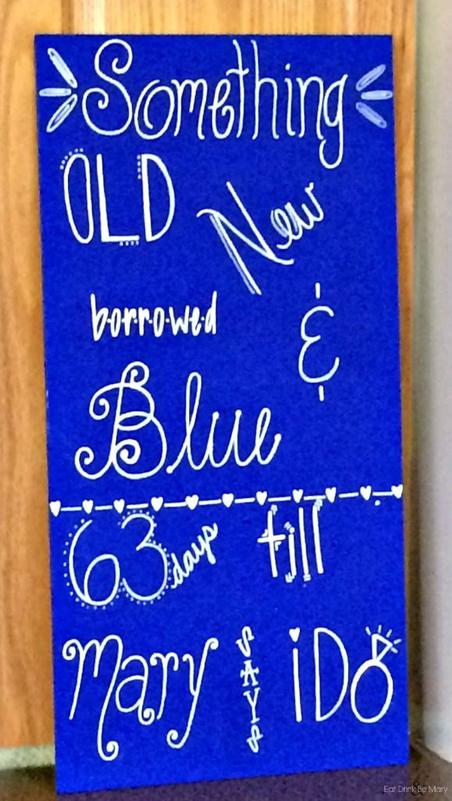 Something
OLD
New
borrowed
&
Blue
63 days till
Mary SAYS iDO
Eat Drink Be Mary